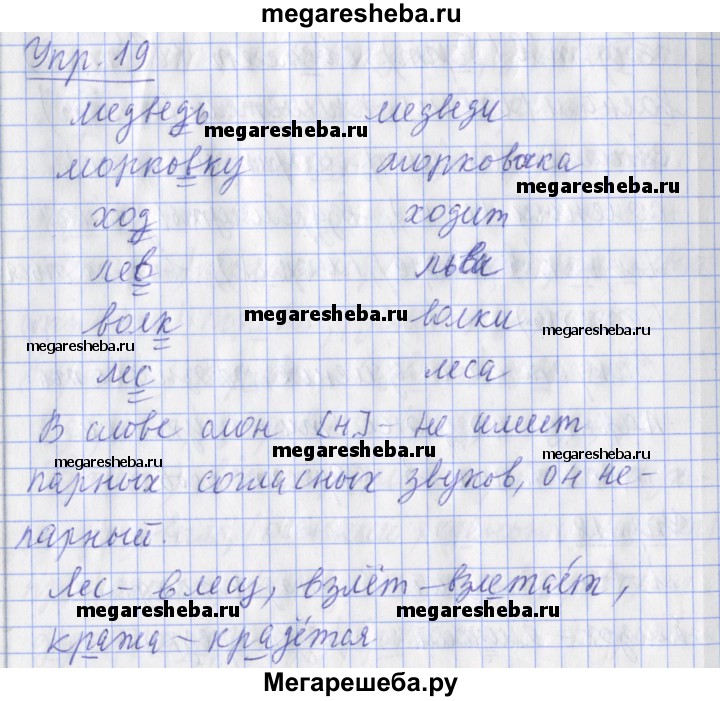 megaresheba.ru
Упр. 19
медведь медведи
megaresheba.ru
морковку морковка
megaresheba.ru
ход ходит
лев льва
волк волки
megaresheba.ru
megaresheba.ru
megaresheba.ru
лес леса
В слове слон [н] - не имеет
megaresheba.ru
megaresheba.ru
megaresheba.ru
парных согласных звуков, он не-
парный.
Лес - в лесу, взлёт - взлетает,
megaresheba.ru
megaresheba.ru
кража - крадётся
Мегарешеба.ру